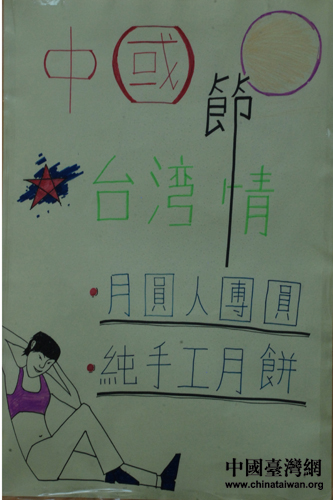 中國節
台湾情
月圓人團圓
純手工月餅
中國臺灣網
www.chinataiwan.org